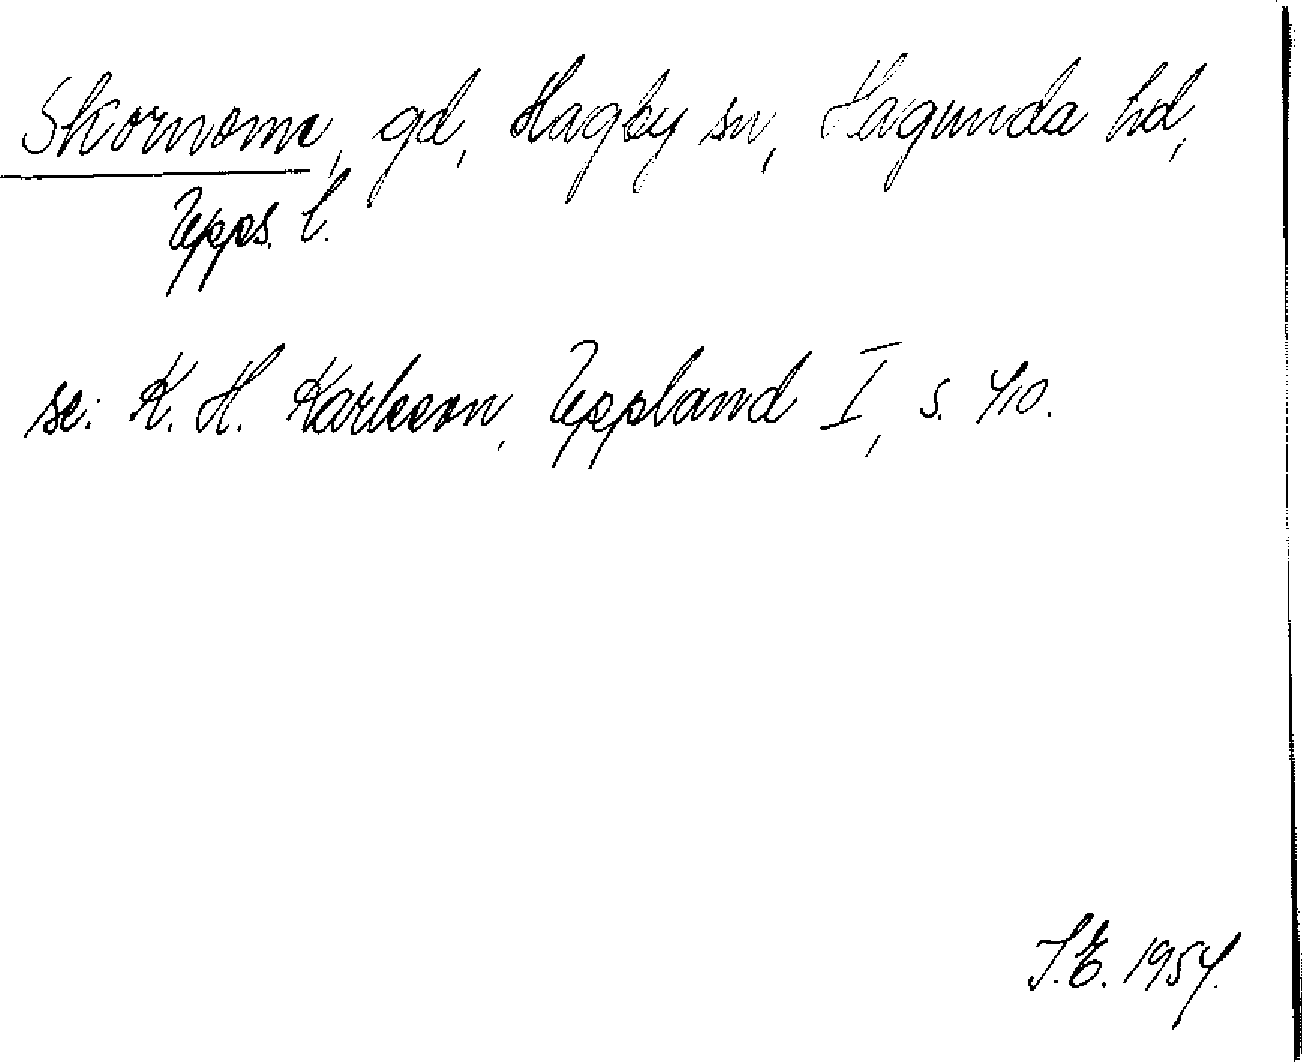 Skornome, gd, Hagby sn, Hagunda hd,
Upps. l.
se: K. H. Karlsson, Uppland I, s. 410.
J.E. 1954.